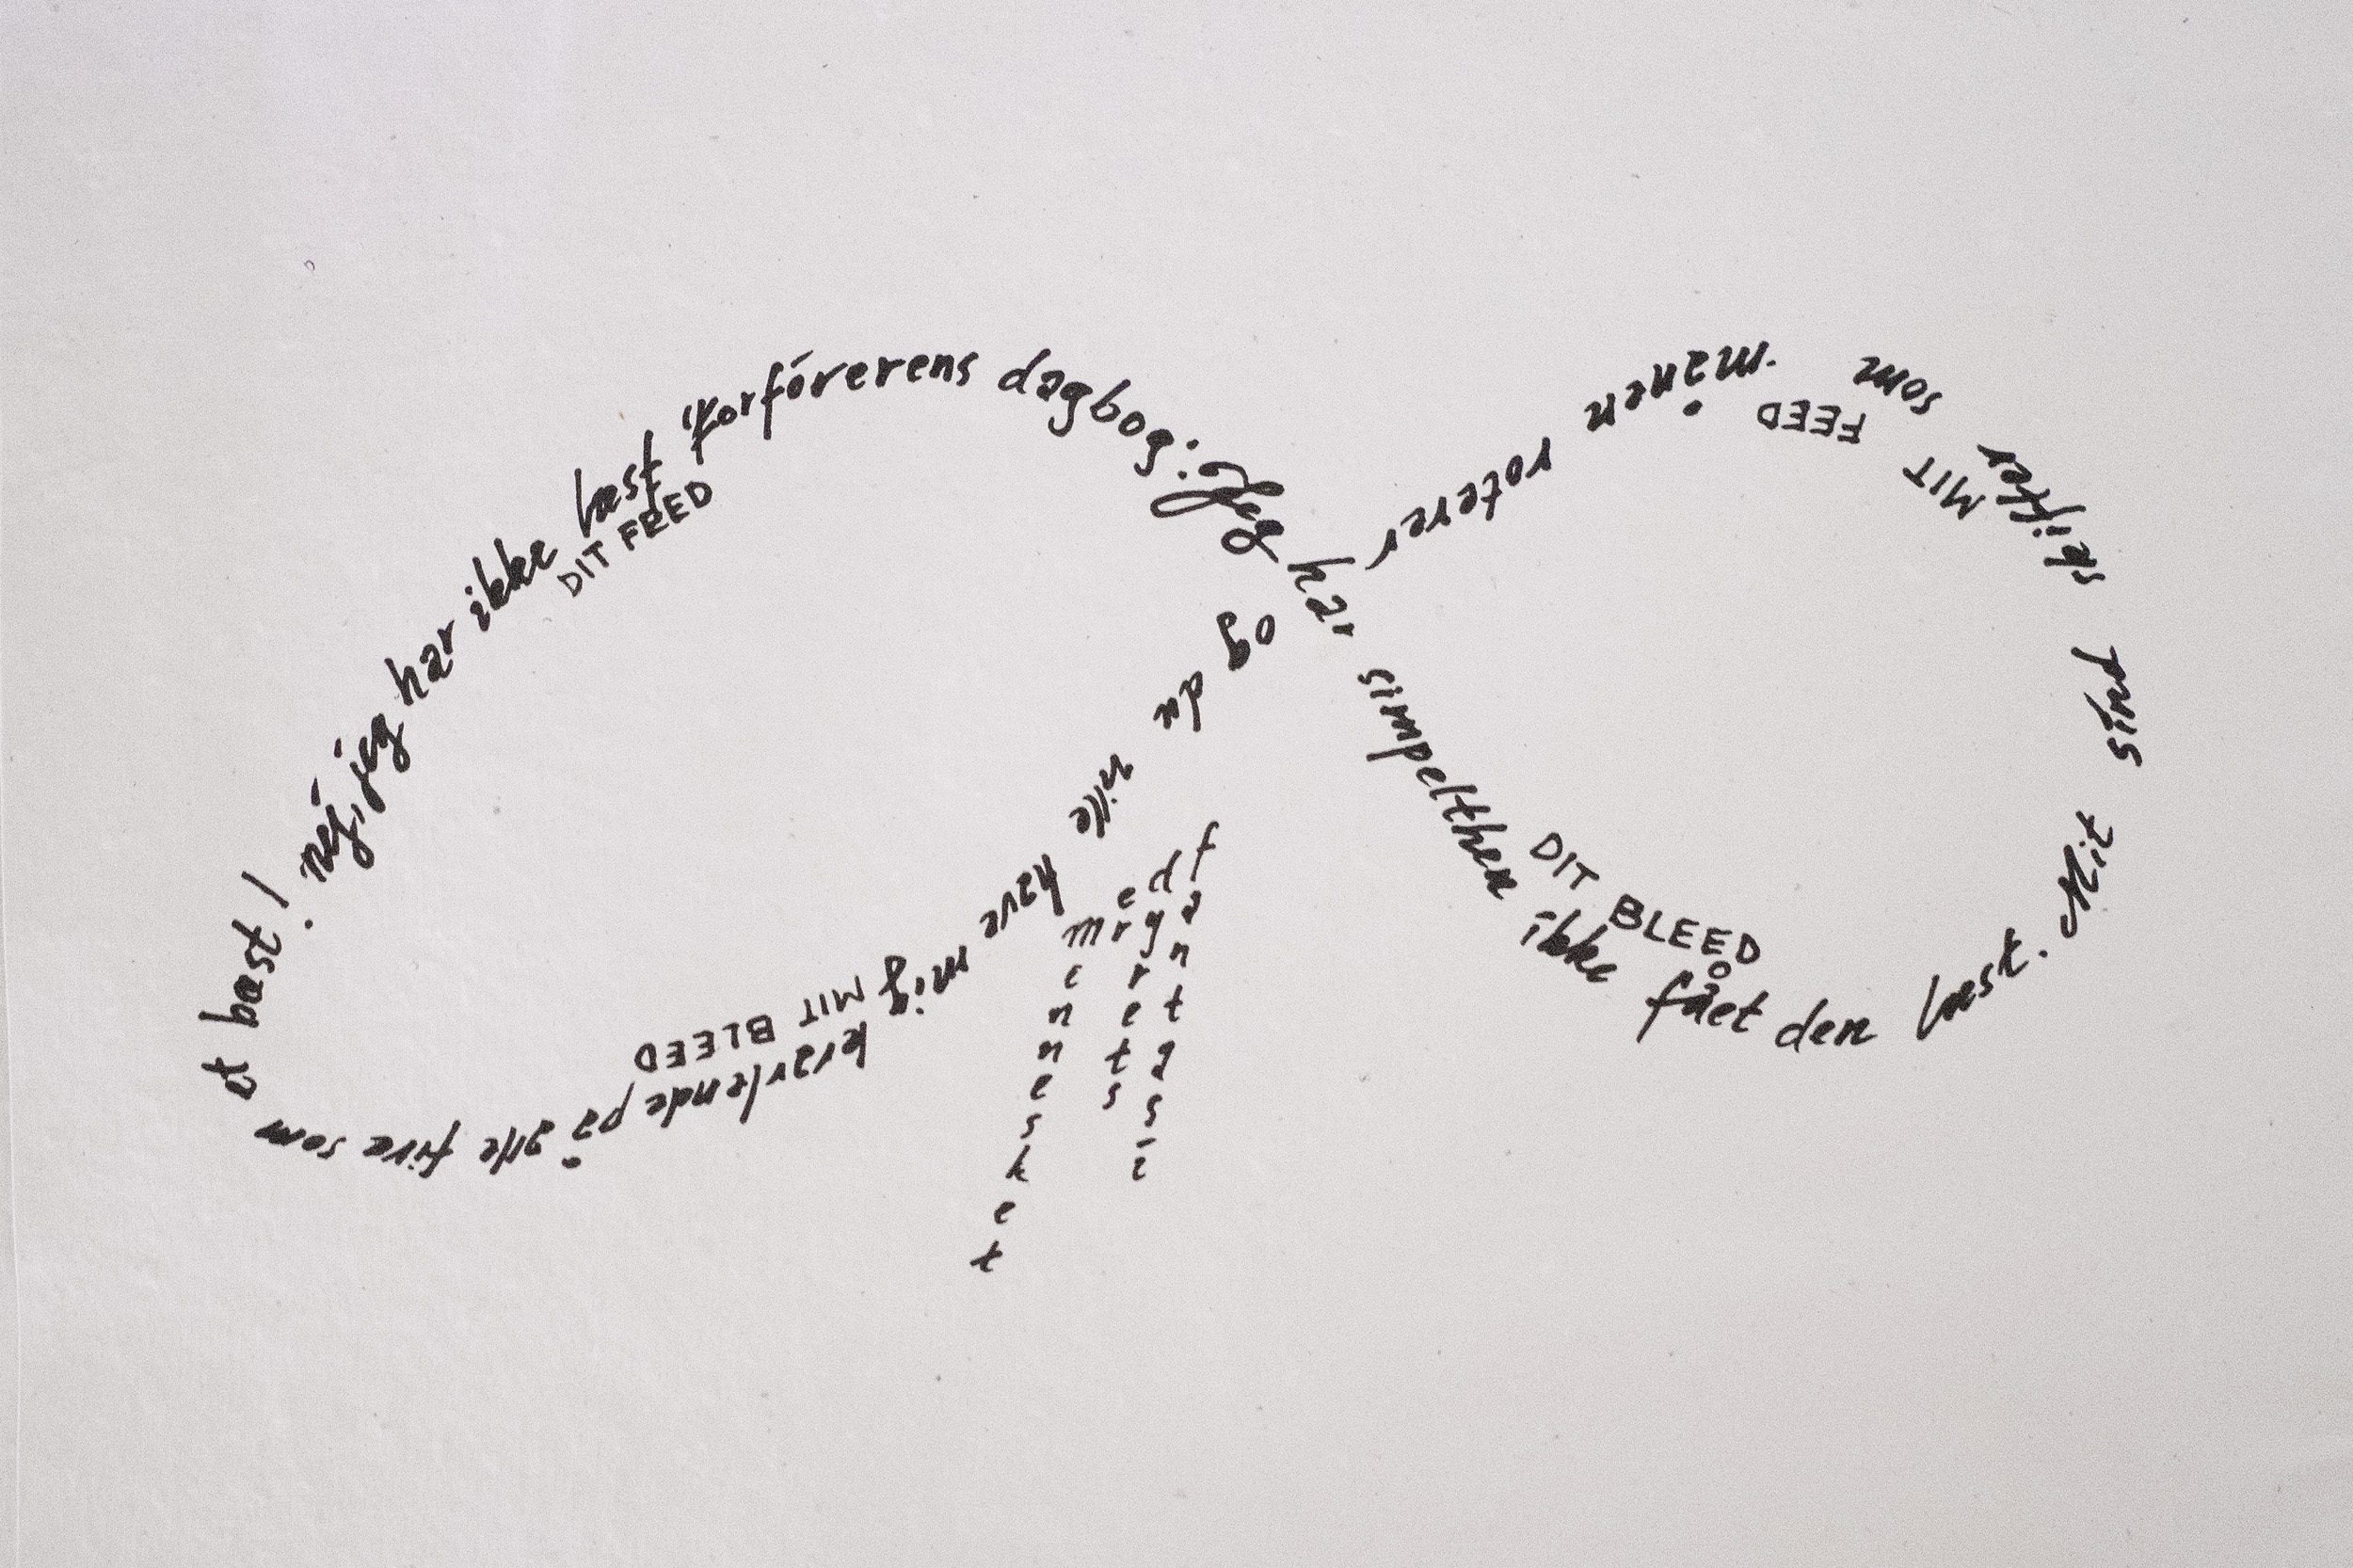 nej, jeg har ikke læst "Forførerens dagbog". Jeg har simpelthen ikke fået den læst. Mit sind skifter som månen roterer og du ville have mig kravlende på alle fire som et bæst!
DIT FEED
DIT BLEED
MIT FEED
MIT BLEED
mennesket
er
dyrets
fantasi